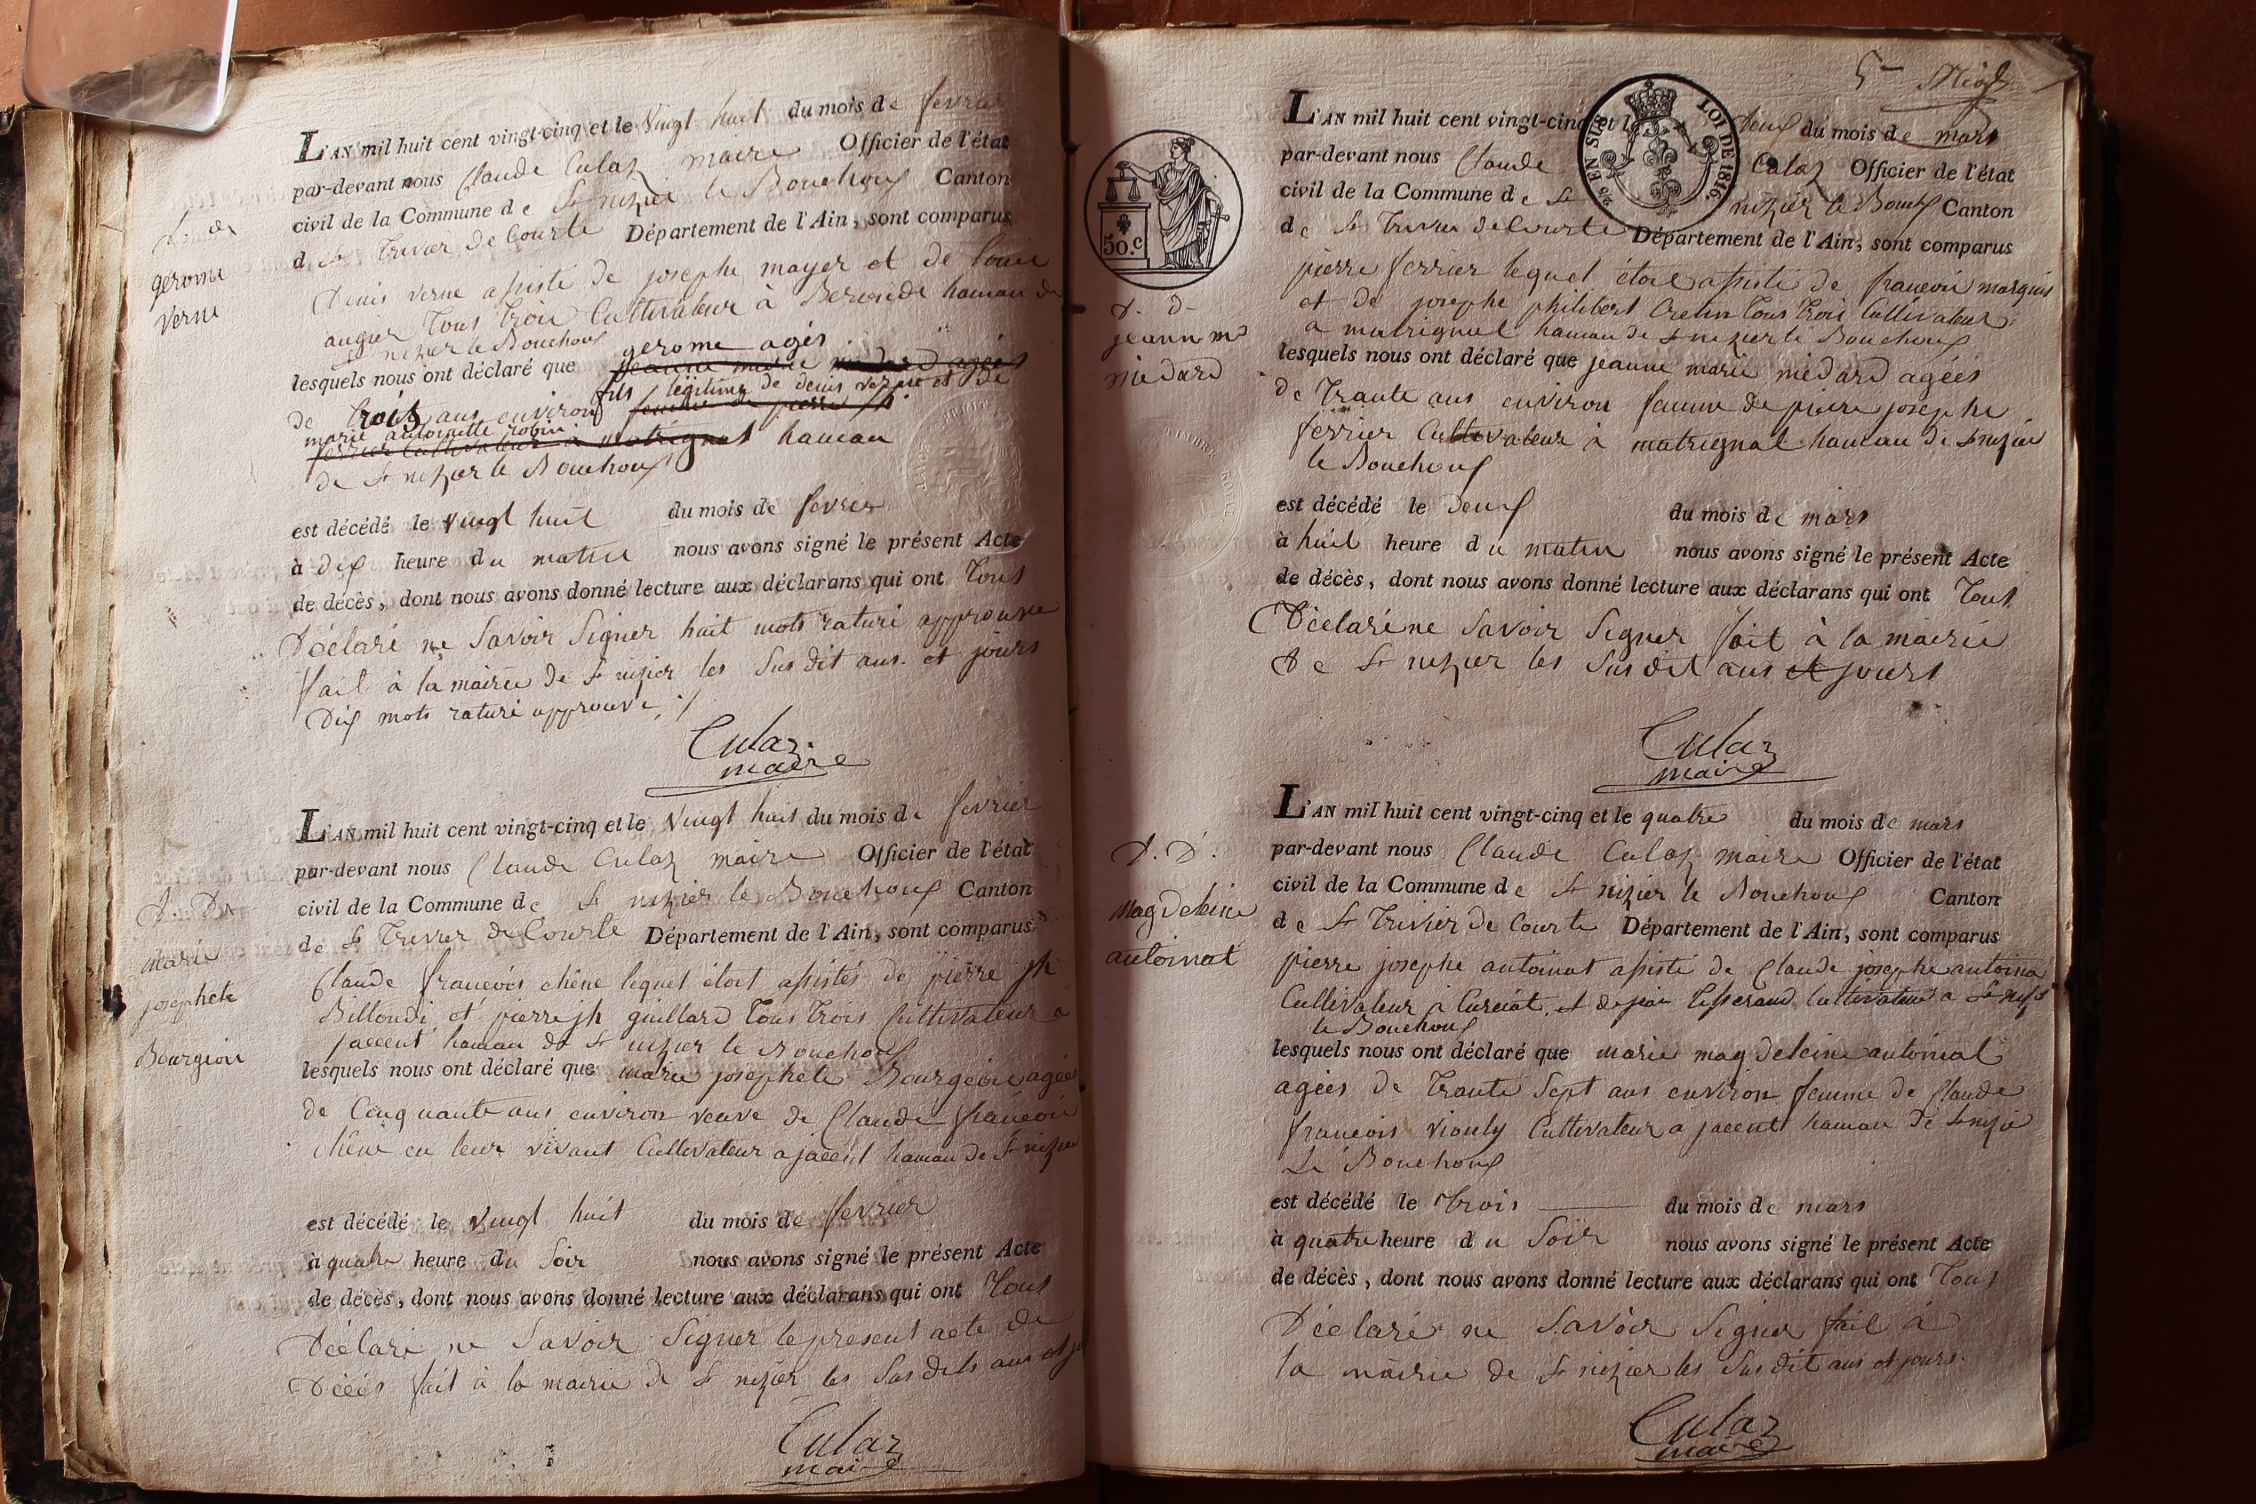 gerome
verne
L'AN mil huit cent vingt-cinq et le vingt huit du mois de fevrier
par-devant nous Claude Culaz maire Officier de l'état
civil de la Commune de St nizier le Bouchoux Canton
d St Trivier de Courte Département de l'Ain, sont comparus
Denis verne assisté de josephe mayer et de louis
augier tous trois Cultivateur à hamau de
St nizier le Bouchoux
gerome agés
lesquels nous ont déclaré que jeanne marie medard agées
fils légitime de denis verne et de
de trois ans environ femme de pierre jh
marie antoinette robin
ferrier cultivateur a matrignat hamau
de St nizier le Bouchoux
est décédé le vingt huit du mois de fevrer
à dix heure du matin nous avons signé le présent Acte
de décès, dont nous avons donné lecture aux déclarans qui ont Tous
Déclaré ne Savoir Signer huit mots raturé approuve
fait à la mairie de St nizier les Sus dit ans et jours
Dix mots raturé approuvé
Culaz
maire
D. D
marie
josephete
Bourgeois
L'AN mil huit cent vingt-cinq et le vingt huit du mois de fevrier
par-devant nous Claude Culaz maire Officier de l'état
civil de la Commune de St nizier le Bouchoux Canton
de St Trivier de Courte Département de l'Ain, sont comparus
Claude francois chêne lequel étoit assistés de pierre jh
Billoudi et pierre jh guillard tous trois Cultivateur a
jacent hamau de St nizier le Bouchoux
lesquels nous ont déclaré que marie josephete Bourgeois agées
de Cinquante ans environ veuve de Claude francois
chêne en leur vivant Cultivateur a jacent hamau de St nizier
est décédé le vingt huit du mois de fevrier
à quatre heure du Soir nous avons signé le présent Acte
de décès, dont nous avons donné lecture aux déclarans qui ont Tous
Déclaré ne Savoir Signer le present acte de
Décés fait à la mairie de St nizier les Sus dits ans et
Culaz
maire
5
LOI DE 1816.
EN SUS
50.c
D. D
jeanne me
medard
L'AN mil huit cent vingt-cinq et le Deux du mois de mars
par-devant nous Claude Culaz Officier de l'état
civil de la Commune de St nizier le Boux Canton
de St Trivier de Courte Département de l'Ain, sont comparus
pierre ferrier lequel étoit assisté de francois marquis
et de josephe philibert Cretin tous trois Cultivateur
a matrignat hamau de St nizier le Bouchoux
lesquels nous ont déclaré que jeanne marie medard agées
de trante ans environ femme de pierre josephe
ferrier Cultivateur à matrignat hamau de St nizier
le Bouchoux
est décédé le Deux du mois de mars
à huit heure du matin nous avons signé le présent Acte
de décès, dont nous avons donné lecture aux déclarans qui ont Tous
Déclaré ne Savoir Signer fait à la mairie
de St nizier les Sus dit ans et jours
Culaz
maire
D. D.
magdeleine
antoinat
L'AN mil huit cent vingt-cinq et le quatre du mois de mars
par-devant nous Claude Culaz maire Officier de l'état
civil de la Commune de St nizier le Bouchoux Canton
de St Trivier de Courte Département de l'Ain, sont comparus
pierre josephe antoinat assisté de Claude josephe antoina
Cultivateur à Curciat, et de tisserand Cultivateur a St nizir
le Bouchoux
lesquels nous ont déclaré que marie magdeleine antoinat
agées de trante Sept ans environ femme de Claude
francois viouly Cultivateur a jacent hamau de St nizie
Le Bouchoux
est décédé le trois du mois de mars
à quatre heure du Soir nous avons signé le présent Acte
de décès, dont nous avons donné lecture aux déclarans qui ont Tous
Déclaré ne Savoir Signer fait à
la mairie de St nizier les Sus dit ans et jours.
Culaz
maire